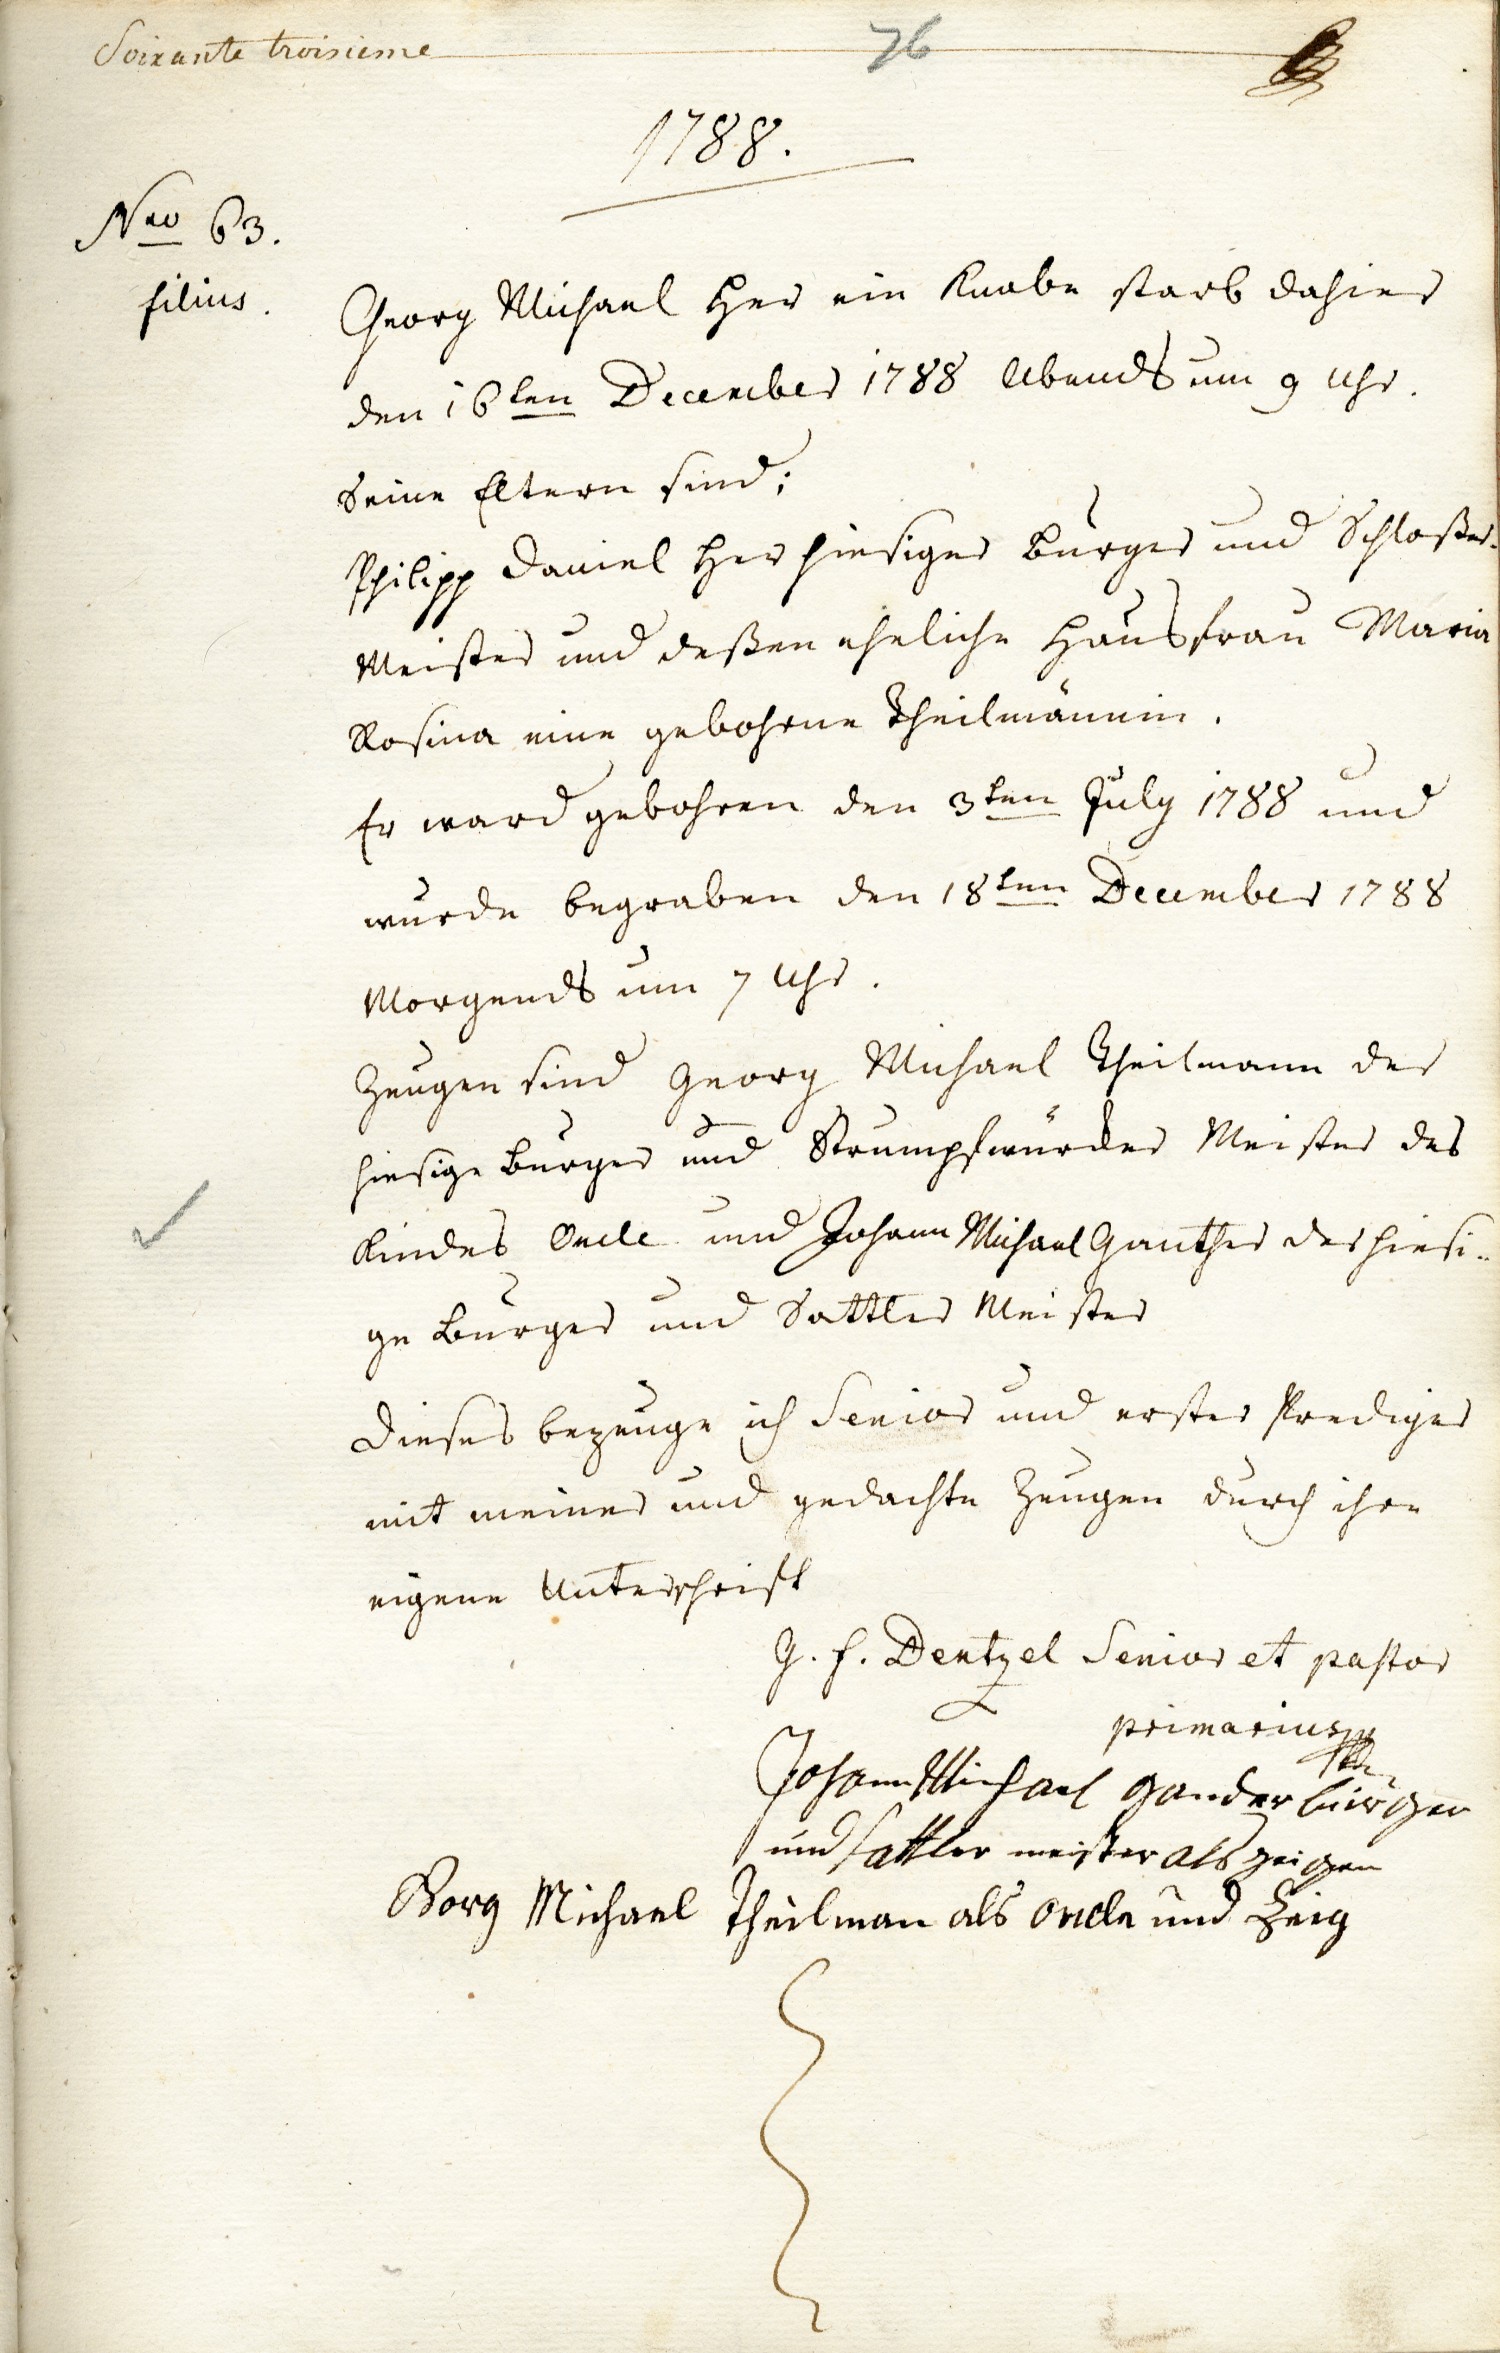 Soixante troisieme
76
1788.
Nro 63.
filius.
Georg Michael Her ein Knabe starb dahier
den 16ten December 1788 Abends um 9 Uhr.
Seine Eltern sind;
Philipp Daniel Her hiesiger Burger und Schloßer-
Meister und deßen eheliche Hausfrau Maria
Rosina eine gebohrne Theilmännin.
Er ward gebohren den 3ten July 1788 und
wurde begraben den 18ten December 1788
Morgends um 7 Uhr.
Zeugen sind Georg Michael Theilmann der
hiesige Burger und Strumpfwürker Meister des
Kindes Oncle und Johann Michael Ganther der hiesi-
ge Burger und Sattler Meister
Dieses bezeuge ich Senior und erster Prediger
mit meiner und gedachte Zeugen durch ihre
eigene Unterschrift
G. F. Dentzel Senior et pastor
primarius
Johann Michael Gander bürger
und sattler meister als zeigen
Gorg Michael Theilman als Oncle und Zeig